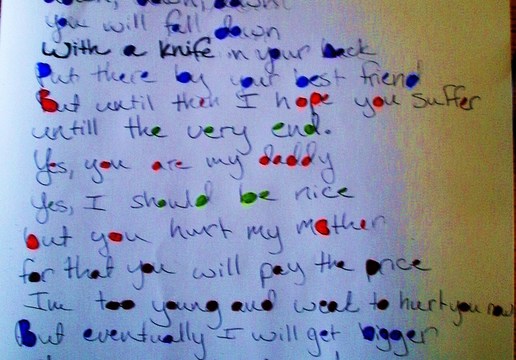 down, down, down!
you will fall down
With a knife in your back
Put there by your best friend
But until then I hope you suffer
untill the very end.
Yes, you are my daddy
Yes, I should be nice
but you hurt my mother
for that you will pay the price
Im too young and weak to hurt you now
But eventually I will get bigger